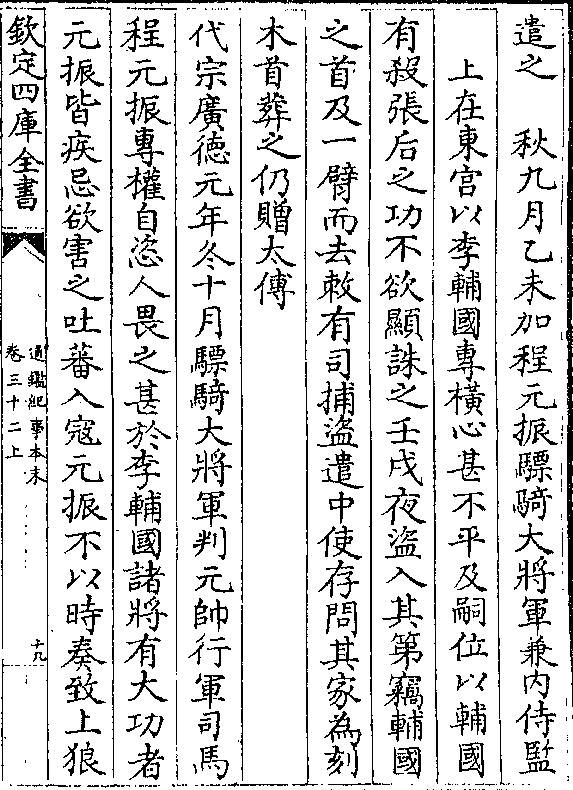 遣之　秋九月乙未加程元振驃騎大將軍兼内侍監
上在東宫以李輔國專横心甚不平及嗣位以輔國
有殺張后之功不欲顯誅之壬戌夜盜入其第竊輔國
之首及一臂而去敕有司捕盜遣中使存問其家為刻
木首葬之仍贈太傅
代宗廣徳元年冬十月驃騎大將軍判元帥行軍司馬
程元振專權自恣人畏之甚於李輔國諸將有大功者
元振皆疾忌欲害之吐蕃入寇元振不以時奏致上狼
欽定四庫全書
通鑑紀事本末
卷三十二上
十九